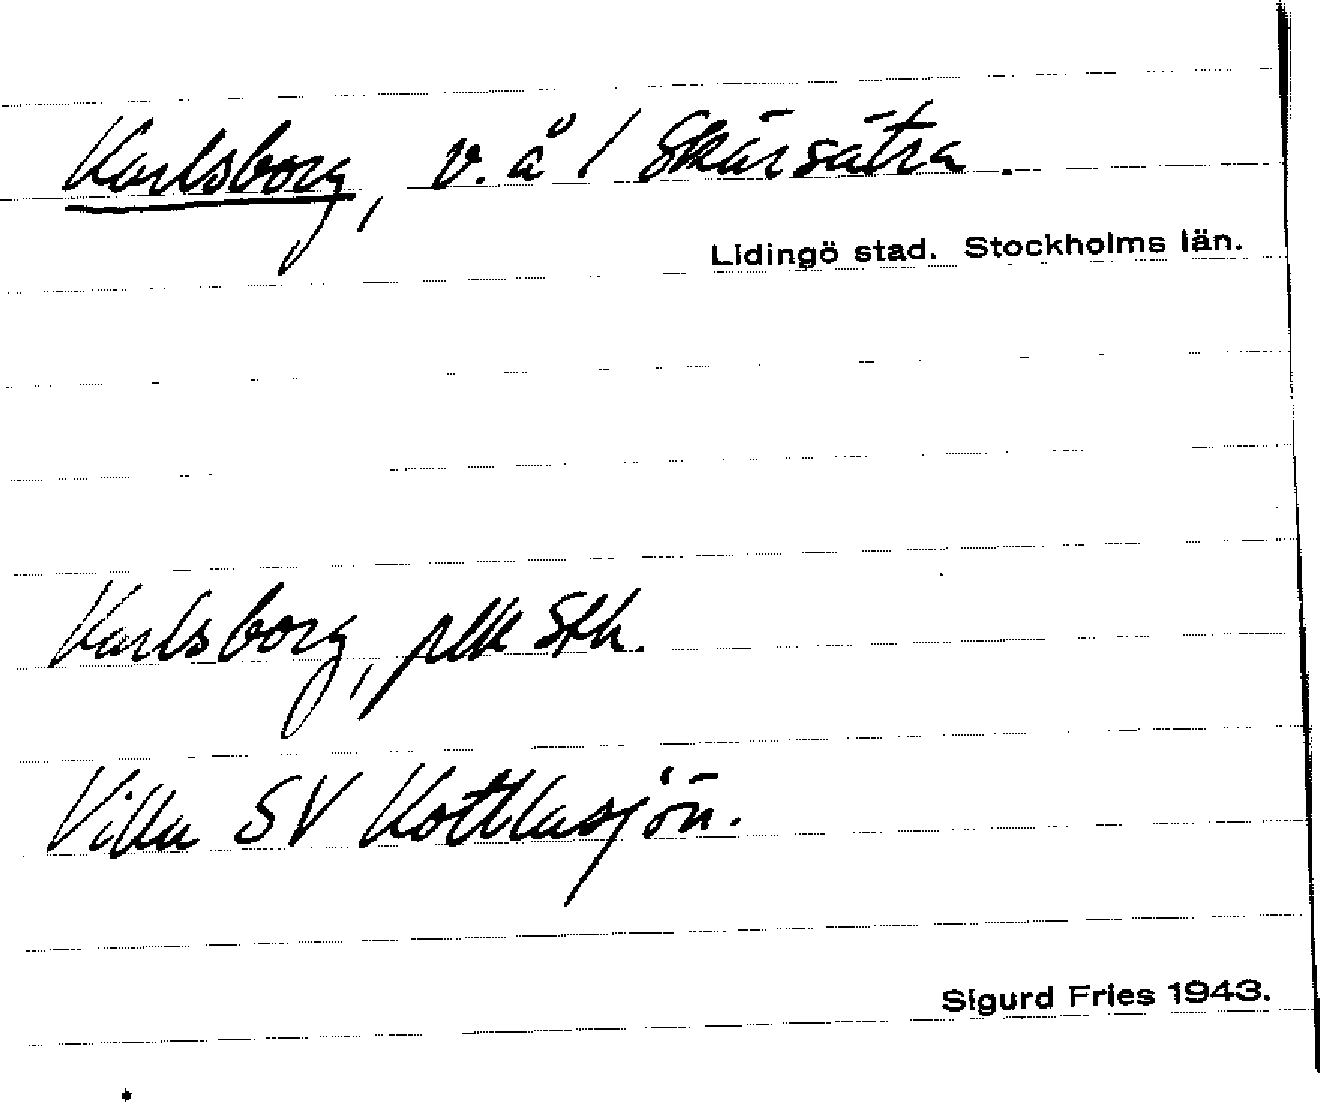 Karlsborg, v. å / Skärsätra.
Lidingö stad. Stockholms län.
Karlsborg, plk Sth.
Villa SV Kottlasjön.
Sigurd Fries 1943.